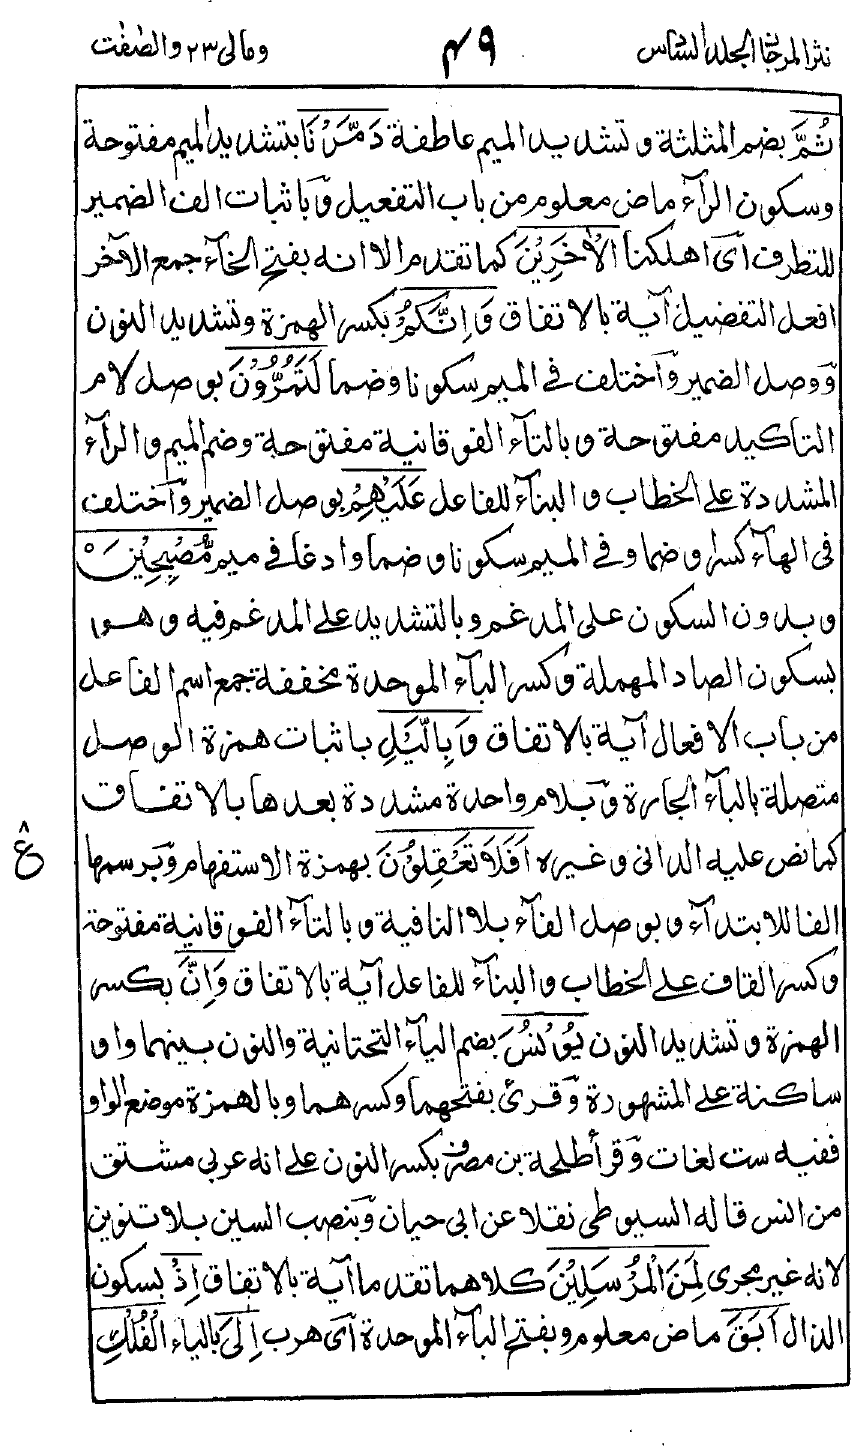 نثر المرجان المجلد السادس
٤٩
ومالي ٢٣ والصفت
ثُمَّ بضم المثلثة وتشديد الميم عاطفة دَمَّرْنَا بتشديد الميم مفتوحة
وسكون الرآء ماض معلوم من باب التفعيل وباثبات الف الضمير
للتطرف اى اهلكنا الْاٰخَرِيْنَ كما تقدم الا انه بفتح الخآء جمع الآخر
افعل التفضيل آية بالاتفاق وَاِنَّكُمْ بكسر الهمزة وتشديد النون
ووصل الضمير واختلف في الميم سكونا وضما لَتَمُرُّوْنَ بوصل لام
التاكيد مفتوحة وبالتآء الفوقانية مفتوحة وضم الميم والرآء
المشددة على الخطاب والبنآء للفاعل عَلَيْهِمْ بوصل الضمير واختلف
فى الهآء كسرا وضما وفي الميم سكونا وضما وادغا في ميم مُّصْبِحِيْنَ ٥
وبدون السكون على المدغم وبالتشديد على المدغم فيه وهو
بسكون الصاد المهملة وكسر البآء الموحدة مخففة جمع اسم الفاعل
من باب الافعال آية بالاتفاق وَبِالَّيْلِ باثبات همزة الوصل
متصلة بالبآء الجارة وبلام واحدة مشددة بعدها بالاتفاق
كما نص عليه الدانى وغيره اَفَلَا تَعْقِلُوْنَ بهمزة الاستفهام وبرسمها
الفا للابتدآء وبوصل الفآء بلا النافية وبالتآء الفوقانية مفتوحة
وكسر القاف على الخطاب والبنآء للفاعل آية بالاتفاق وَاِنَّ بكسر
الهمزة وتشديد النون يُوْنُسَ بضم اليآء التحتانية والنون بينهما واو
ساكنة على المشهورة وقرئ بفتحهما وكسرهما وبالهمزة موضع الواو
ففيه ست لغات وقرأ طلحة بن مصرف بكسر النون على انه عربى مشتق
من انس قاله السيوطى نقلا عن ابى حيان وبنصب السين بلا تنوين
لانه غير مجرى لَمِنَ الْمُرْسَلِيْنَ كلاهما تقدما آية بالاتفاق اِذْ بسكون
الذال اَبَقَ ماض معلوم وبفتح البآء الموحدة اى هرب اِلَى بالياء الْفُلْكِ
ع ٨